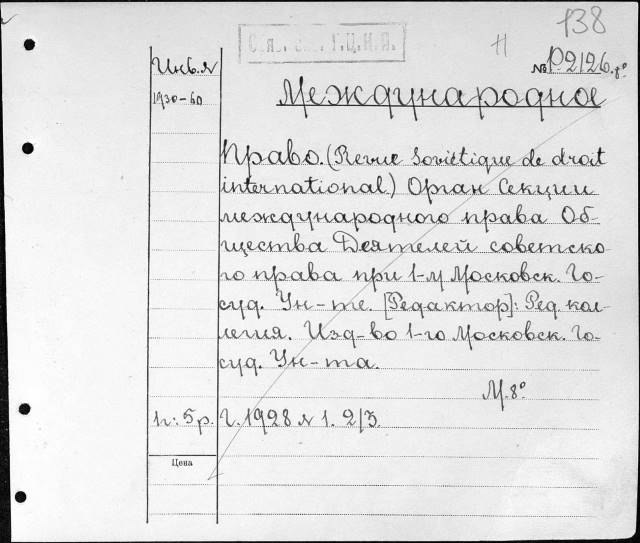 138
Г.Ц.К.П.
№ P.2126.8°
Инв. №
1930-60
Международное
Право. (Revue Soviétique de droit
international.) Орган Секции
международного права Об-
щества Деятелей советско-
го права при 1-м Московск. Го-
суд. Ун-те. [Редактор]: Ред. кол-
легия. Изд-во 1-го Московск. Го-
суд. Ун-та.
М. 8°
1г: 5р. Г. 1928 № 1. 2/3.
Цена